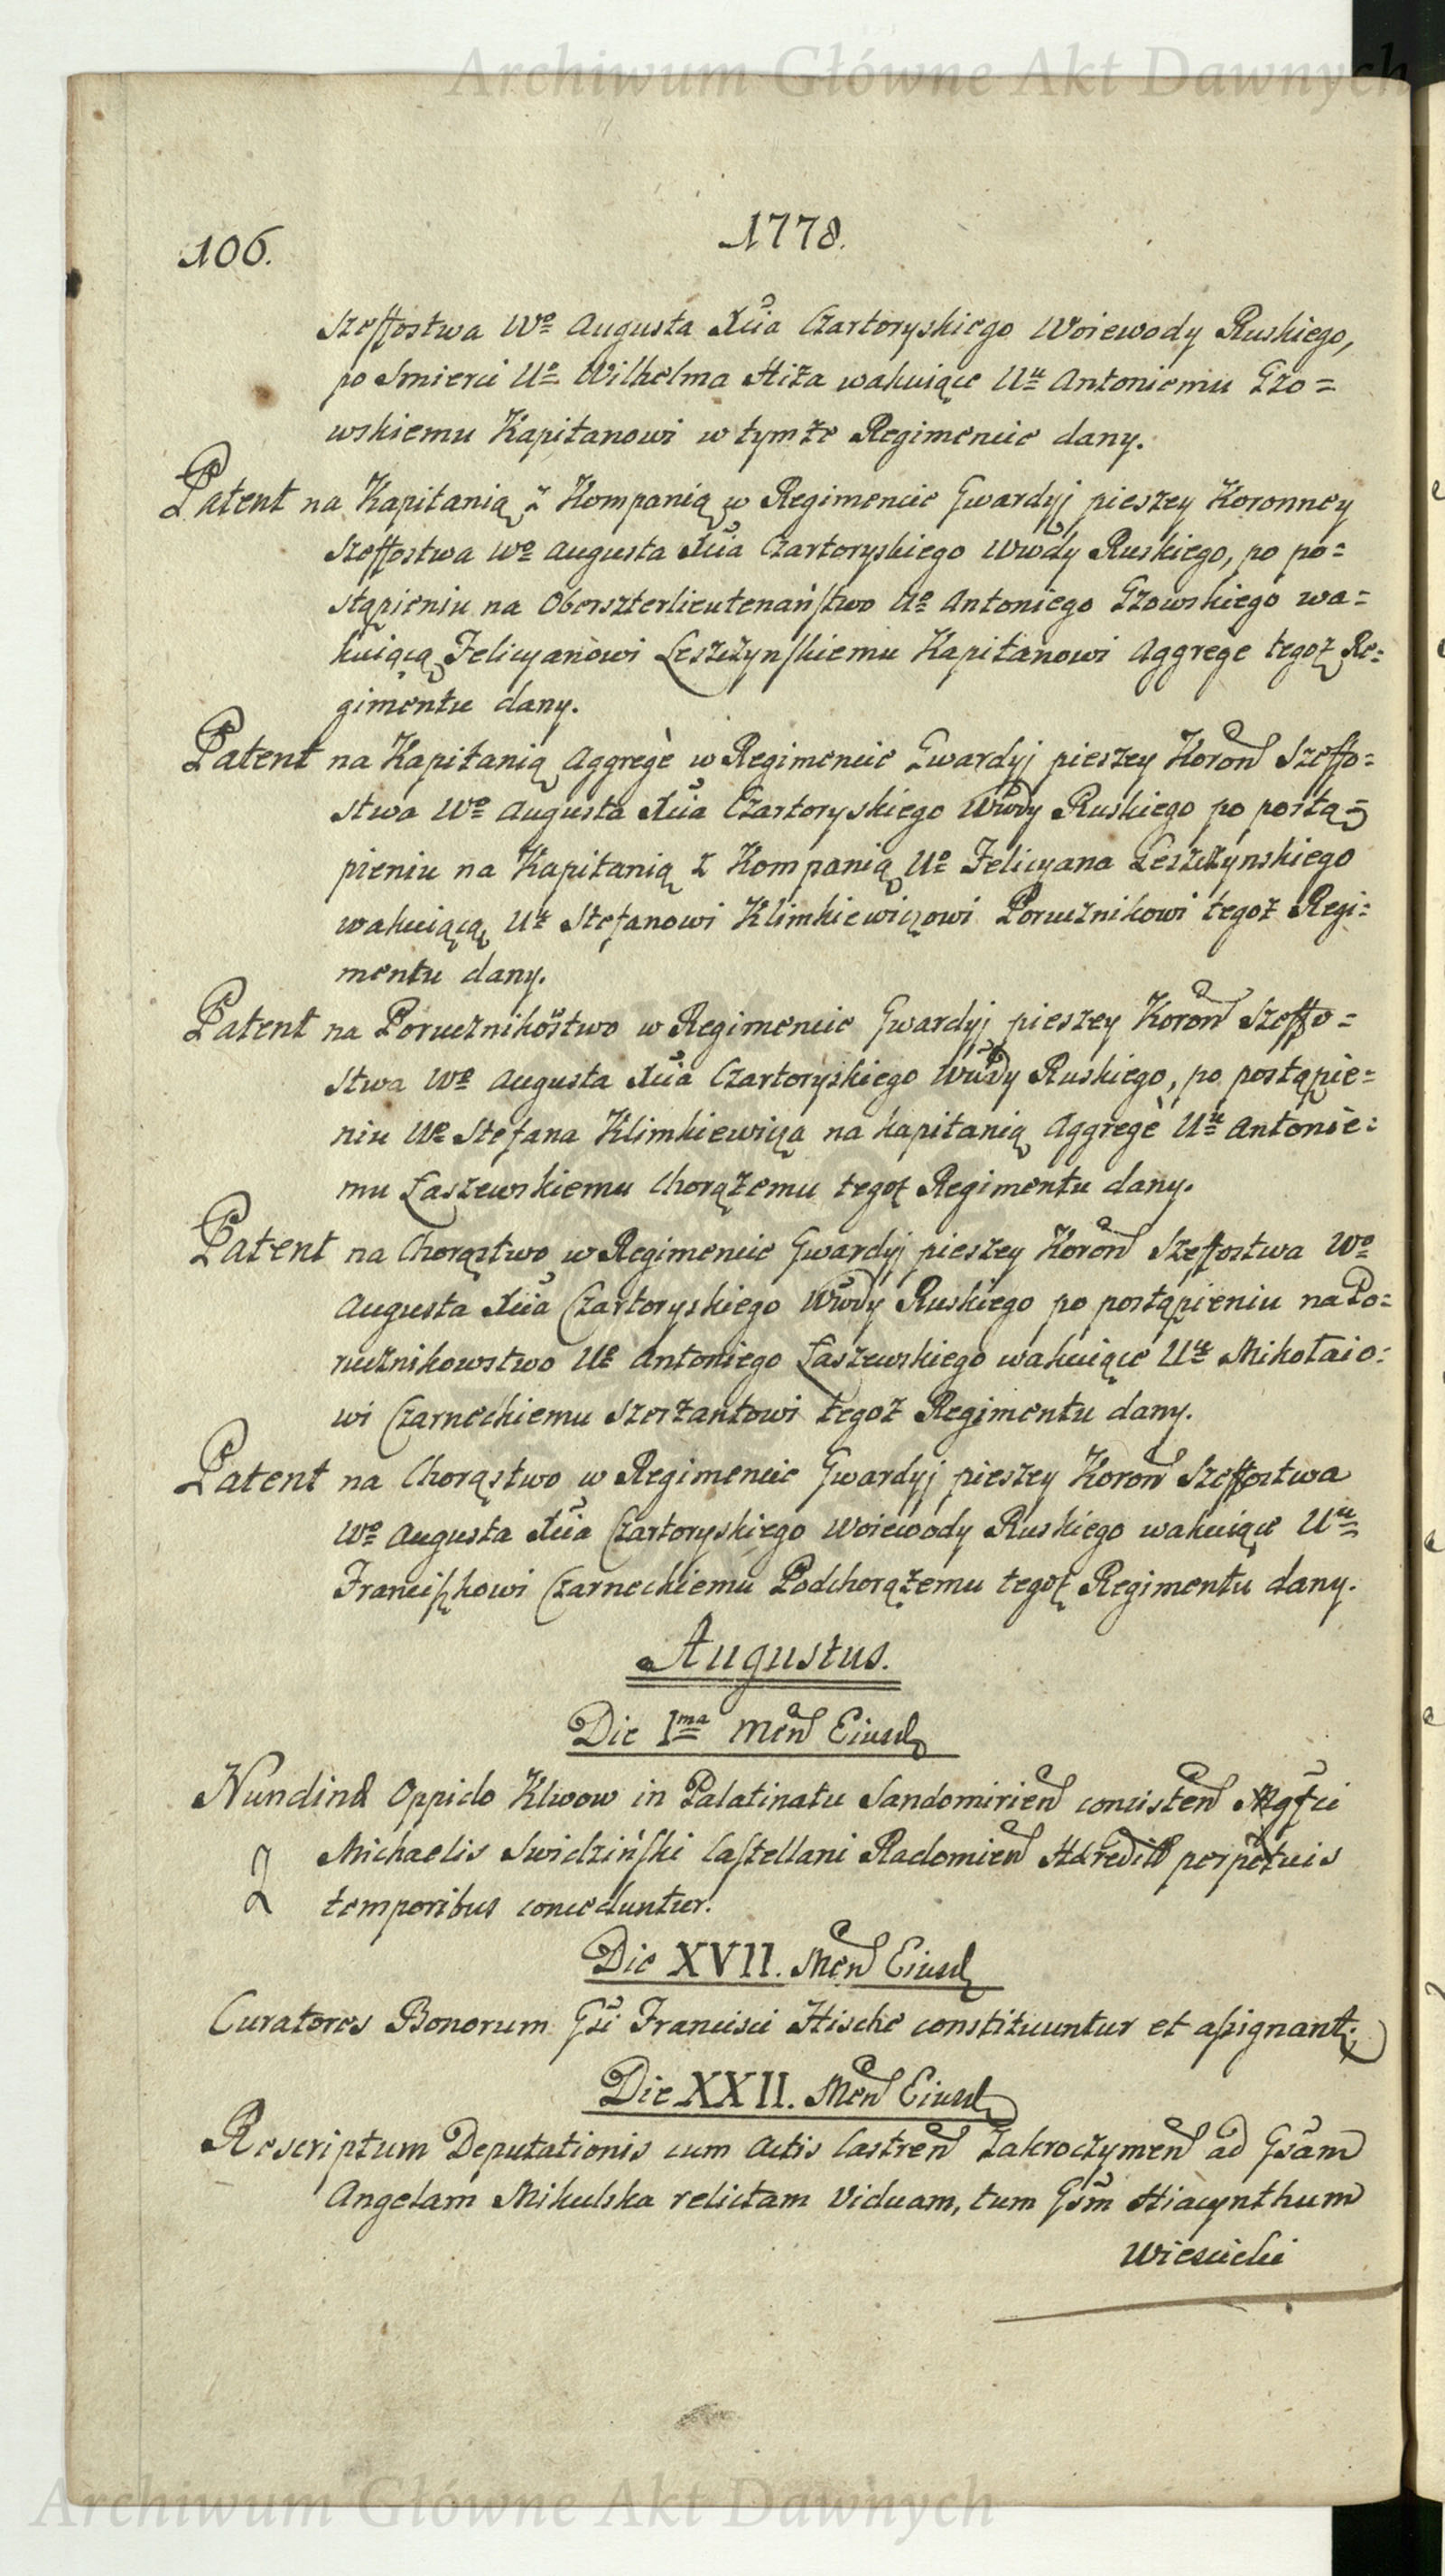 Archiwum Główne Akt Dawnych
106.
1778.
Szeffostwa Wo Augusta Xcia Czartoryskiego Woiewody Ruskiego,
po Smierci Uo Wilhelma Hiża wakuiące Uu Antoniemu Gzo=
wskiemu Kapitanowi w tymże Regimencie dany.
Patent na Kapitanią z Kompanią w Regimencie Gwardyj pieszey Koronney
Szeffostwa Wo Augusta Xcia Czartoryskiego Wwdy Ruskiego, po po=
stąpieniu na Oberszterlieutenaństwo Uo Antoniego Gzowskiego wa=
kuiącą Felicyanowi Leszczynskiemu Kapitanowi Aggregè tegoż Re=
gimentu dany.
Patent na Kapitanią Aggregè w Regimencie Gwardyj pieszey Koron Szeffo=
stwa Wo Augusta Xcia Czartoryskiego Wwdy Ruskiego po postą=
pieniu na Kapitanią z Kompanią Uo Felicyana Leszczynskiego
wakuiącą Uu Stefanowi Klimkiewiczowi Porucznikowi tegoż Regi=
mentu dany.
Patent na Porucznikostwo w Regimencie Gwardyj pieszey Koron Szeffo=
stwa Wo Augusta Xcia Czartoryskiego Wwdy Ruskiego, po postąpie=
niu Uo Stefana Klimkiewicza na kapitanią Aggregè Uu Antonie=
mu Łaszewskiemu Chorążemu tegoż Regimentu dany.
Patent na Chorąstwo w Regimencie Gwardyj pieszey Koron Szeffostwa Wo
Augusta Xcia Czartoryskiego Wwdy Ruskiego po postąpieniu na Po=
rucznikowstwo Uo Antoniego Łaszewskiego wakuiące Uu Mikołaio=
wi Czarneckiemu Szerżantowi tegoż Regimentu dany.
Patent na Chorąstwo w Regimencie Gwardyj pieszey Koron Szeffostwa
Wo Augusta Xcia Czartoryskiego Woiewody Ruskiego wakuiące Uu
Franciszkowi Czarneckiemu Podchorążemu tegoż Regimentu dany.
Augustus.
Die Ima Men Eiusd
Nundinæ Oppido Klwow in Palatinatu Sandomirien consisten Mgfci
Michaelis Swidziński Castellani Radomien Hæredit perpetuis
temporibus conceduntur.
Die XVII. Men Eiusd
Curatores Bonorum Gsi Francisci Hische constituuntur et assignant;
Die XXII. Men Eiusd
Rescriptum Deputationis cum Actis Castren Zakroczymen ad Gsam
Angelam Mikulska relictam Viduam, tum Gsm Hiacynthum
Wiescicki
Archiwum Główne Akt Dawnych